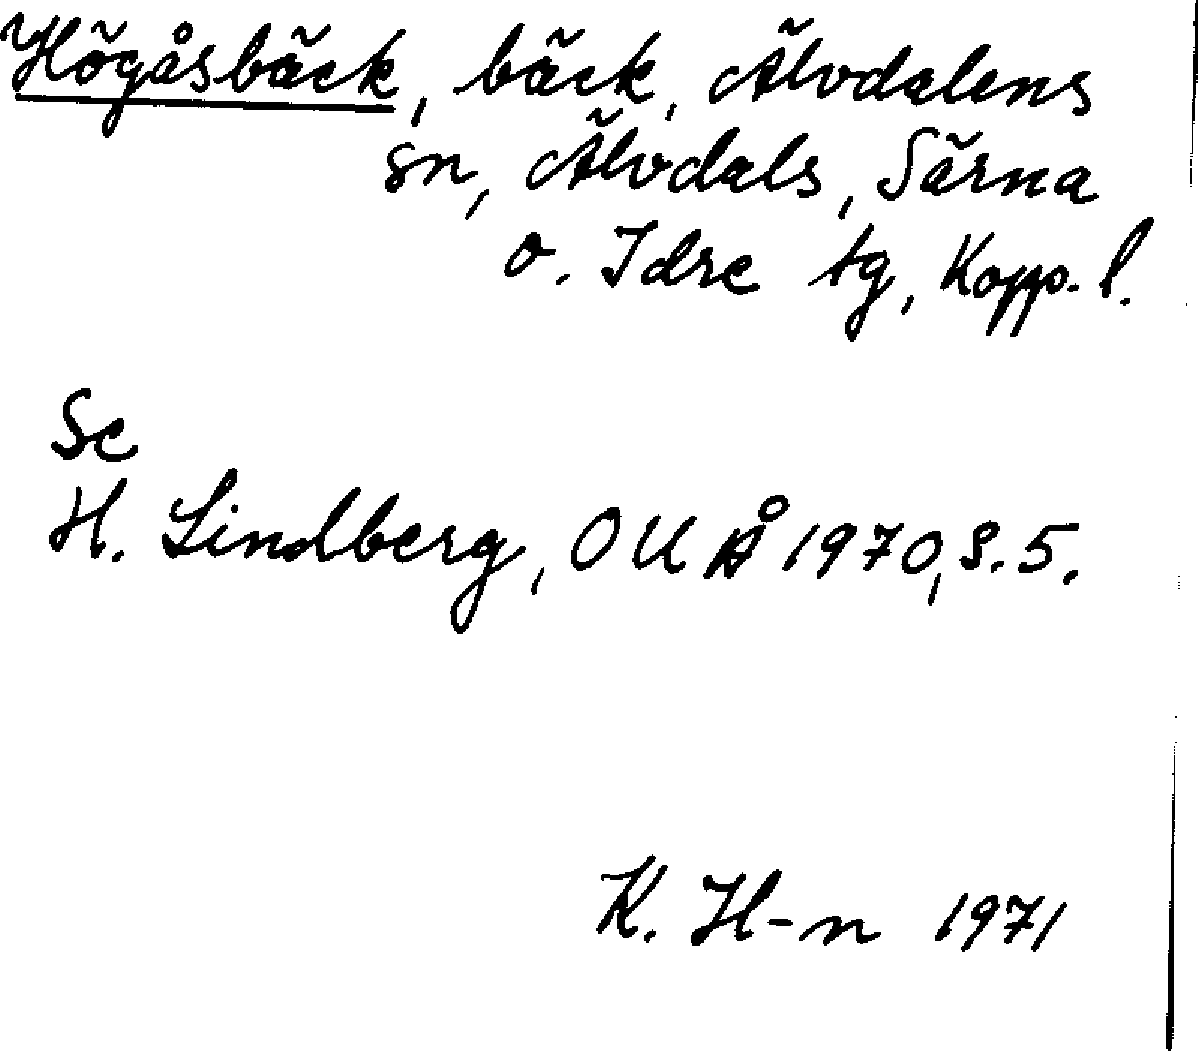 Högåsbäck, bäck, Älvdalens
sn, Älvdals, Särna
o. Idre tg, Kopp. l.
Se
H. Lindberg, OUÅ 1970, s. 5.
K. H-n 1971